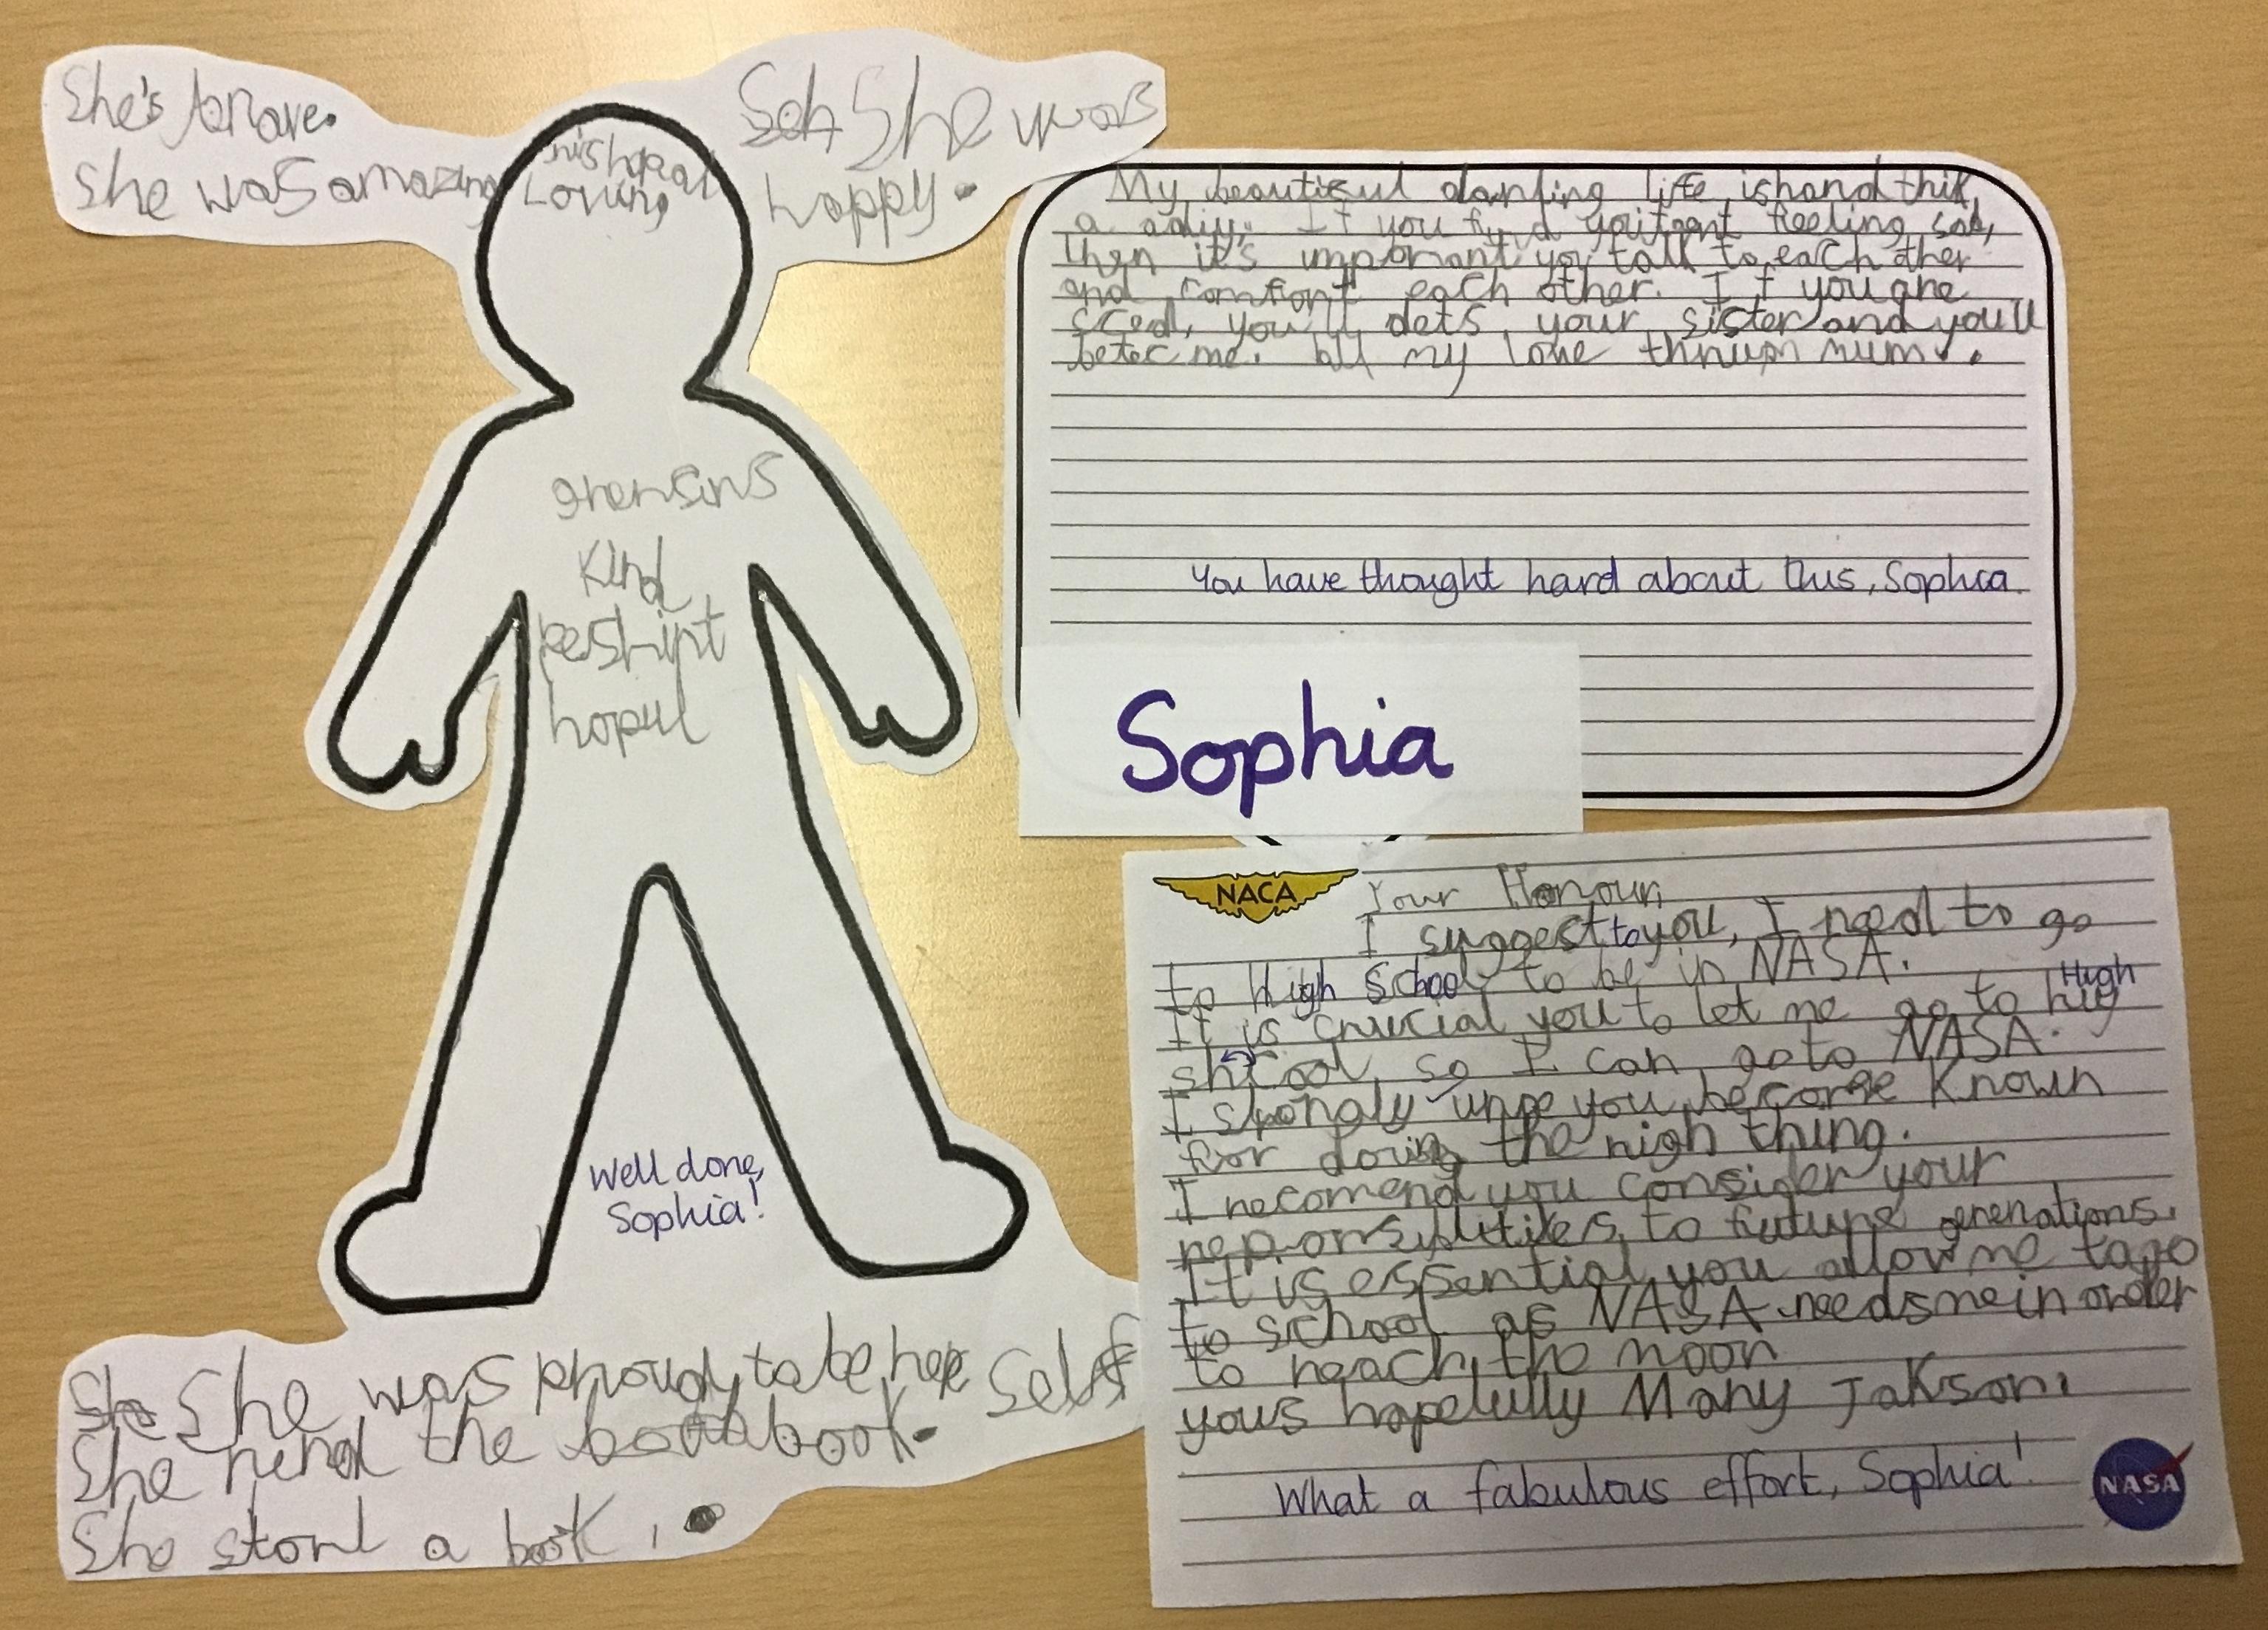 She's brave.
She was amazing
Loving
She was
happy.
grensins
Kind
pershint
hopul
Well done,
Sophia!
She was proud to be her self
She rend the book.
She storl a book.
My beautisul darling life is hand thik
a adiy. If you find feeling sad,
then it's imporant you talk to each other
and comfort each other. If you are
sced, you'll dets your sister and you'll
beter me. all my love mum.
You have thought hard about this, Sophia.
Sophia
NACA
Your Honour,
I suggest to you, I need to go
to High School to be in NASA.
High
It is crucial you to let me go to hig
shcool, so I can go to NASA.
I sprongly urge you become known
for doing the righ thing.
I recomend you consider your
reponsiblities to future generations.
It is essential you allow me to go
to school as NASA needs me in order
to reach the moon
yours hopefully Mary Jakson.
What a fabulous effort, Sophia!
NASA